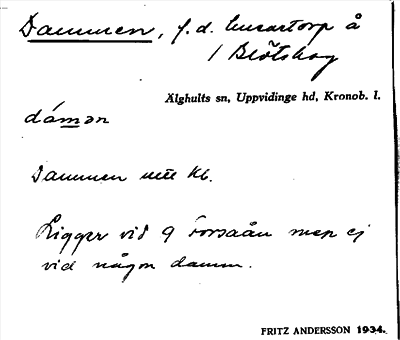 Dammen, f.d. husartorp å
1 Blötskog
Älghults sn, Uppvidinge hd, Kronob. l.
dám̲ən
Dammen utt Kb.
Ligger vid Forsaån men ej
vid någon damm.
FRITZ ANDERSSON 1934.